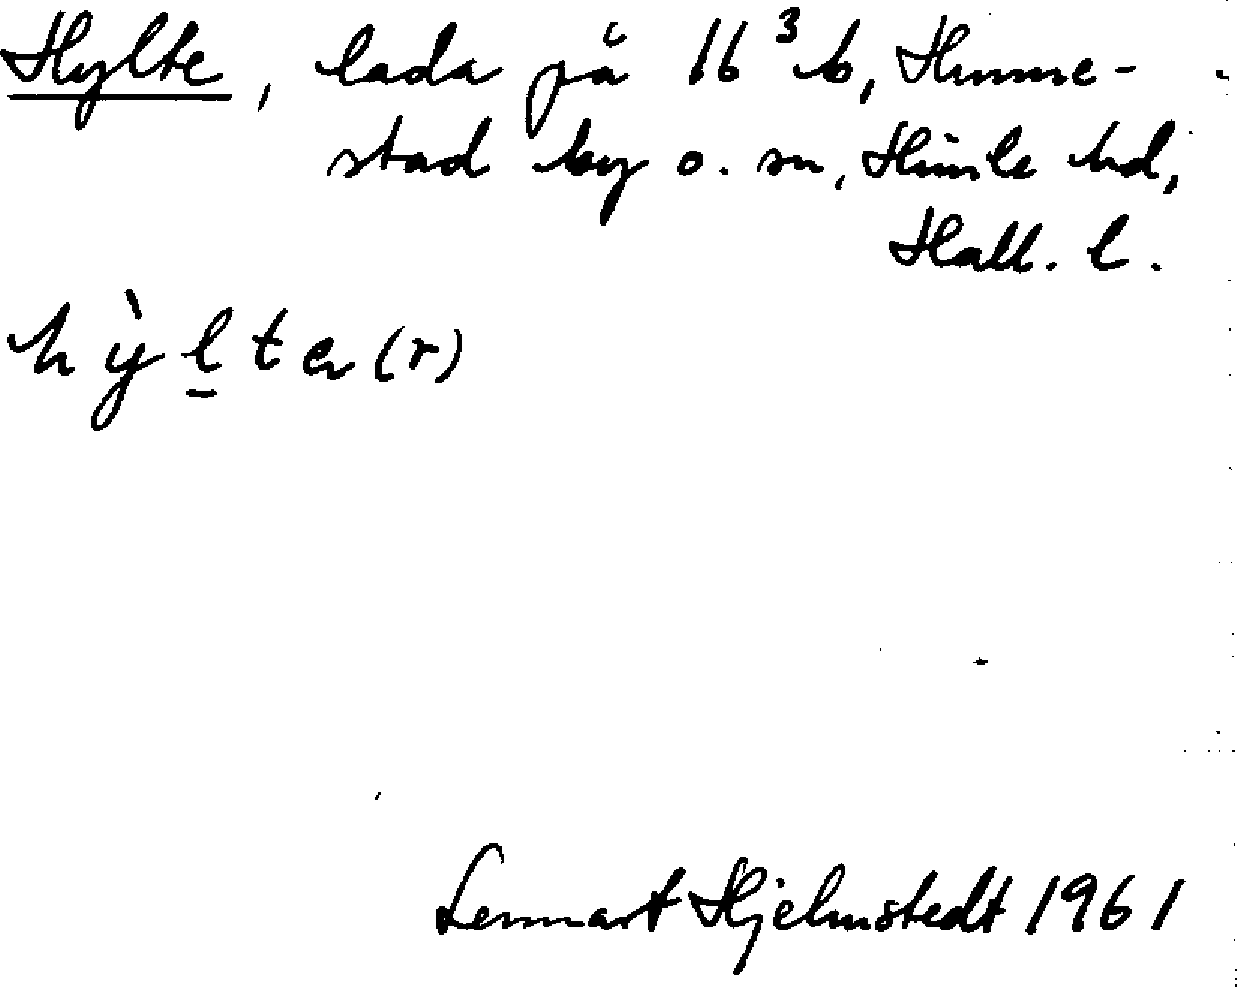 Hylte, lada på 16³b, Hunne-
stad by o. sn, Himle hd,
Hall. l.
hỳḻtə(r)
Lennart Hjelmstedt 1961